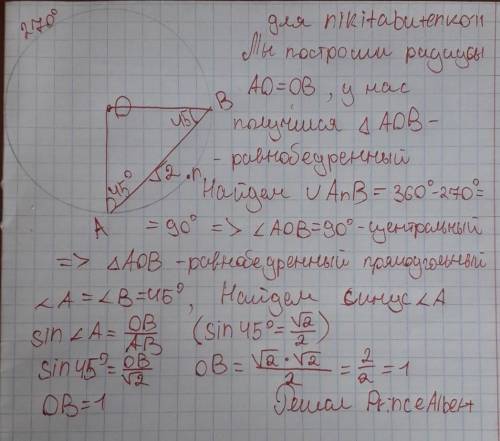 для nikitabutenkon
270°
Мы построили радиусы
AO=OB, у нас
получился △AOB-
-равнобедренный
O
B
45°
45°
√2
n
A
Найдем ∪AnB = 360°-270°=
= 90° => ∠AOB=90°-центральный
=> △AOB -равнобедренный прямоугольный
∠A=∠B=45°, Найдем синус ∠A
sin∠A=OB/AB (sin45°=√2/2)
sin45°=OB/√2 OB=√2·√2/2=2/2=1
OB=1 Решал PrinceAlbert